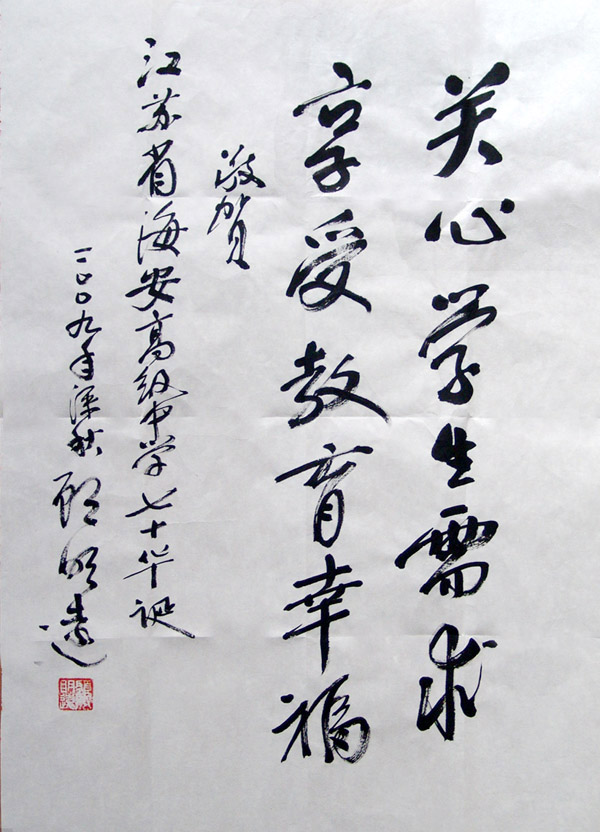 关心学生需求
享受教育幸福
敬贺
江苏省海安高级中学七十华诞
二〇〇九年深秋 顾明远